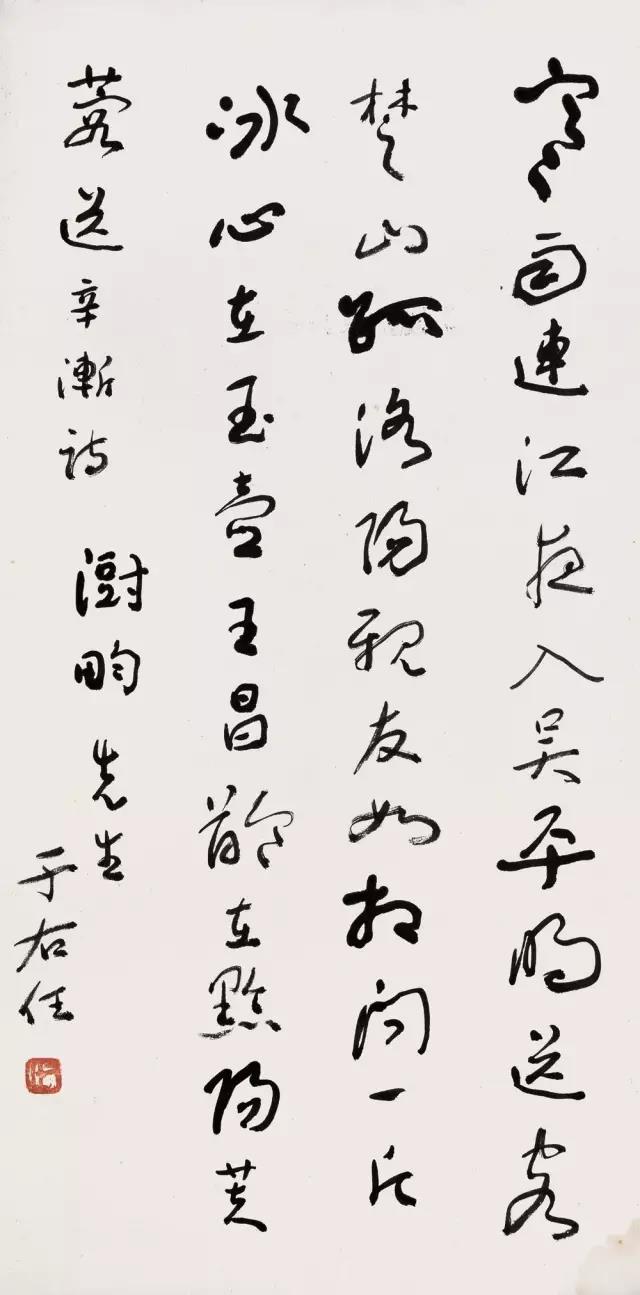 寒雨連江夜入吳平明送客
楚山孤洛陽親友如相問一片
冰心在玉壺王昌齡在黟陽芙
蓉送辛漸詩
澍畇先生
于右任